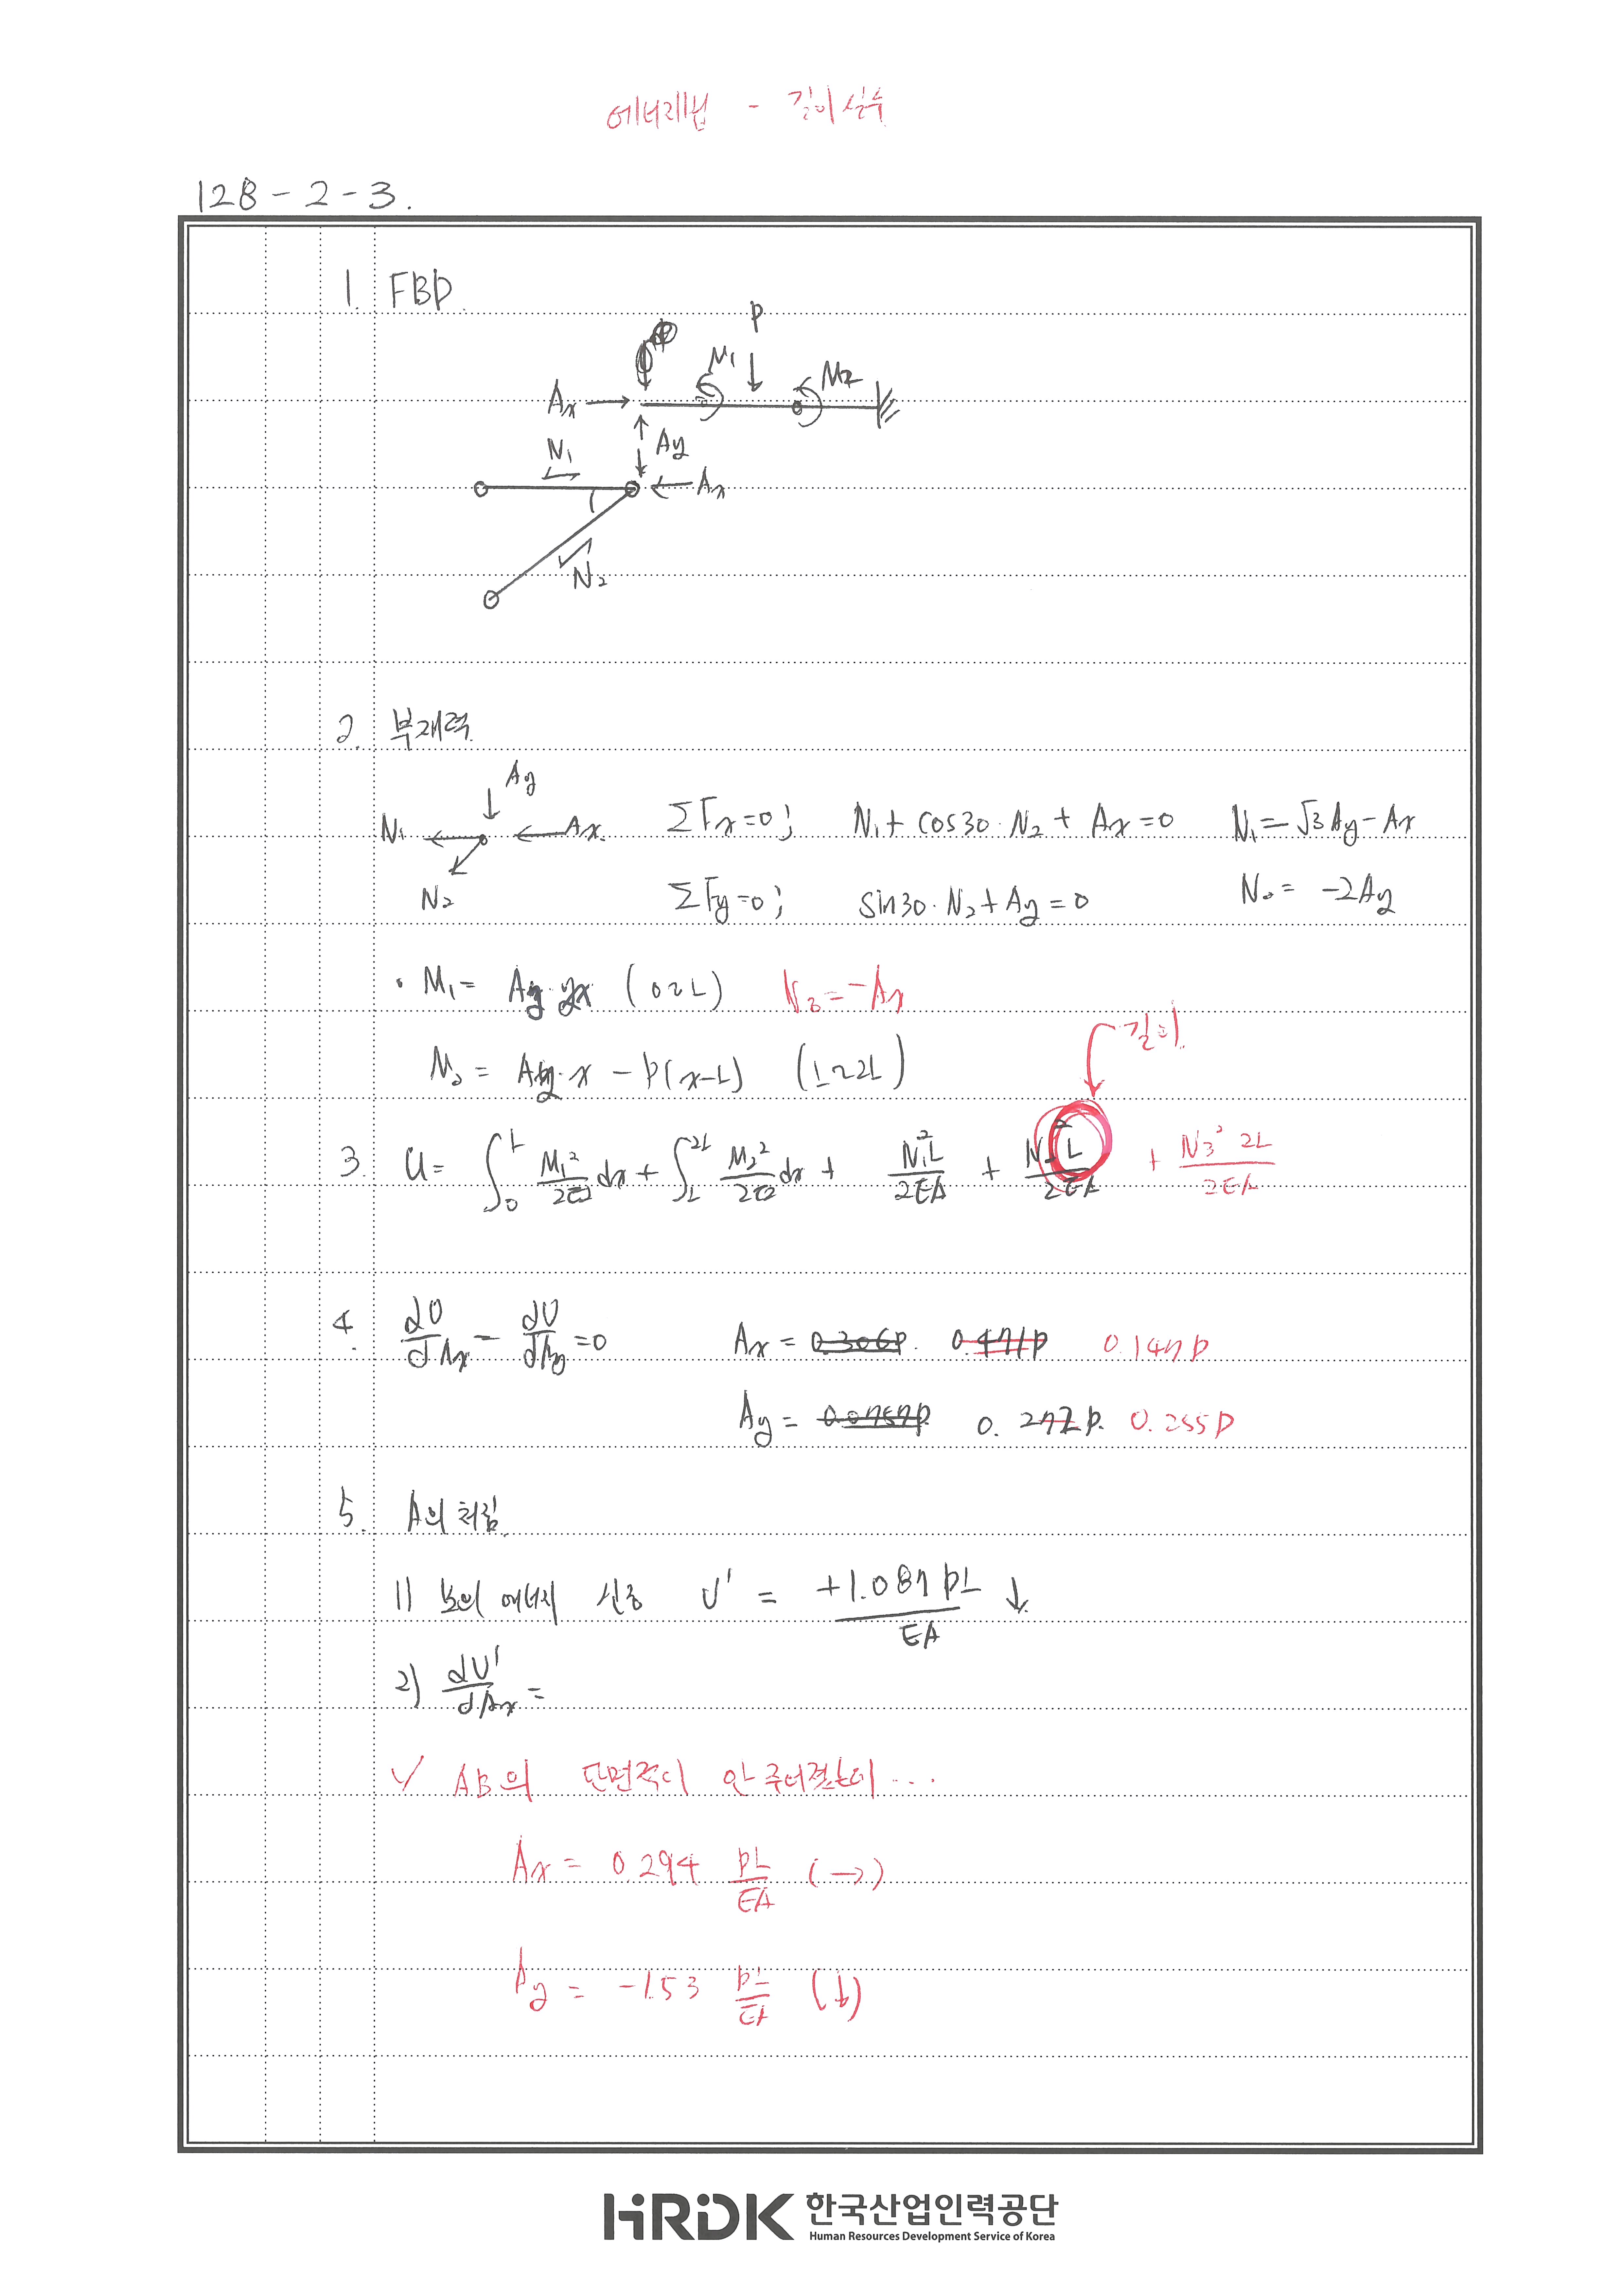 에너지법 - 길이실수
128-2-3.
1. FBD.
P
M1
M2
Ax
Ay
N1
Ax
N2
2. 부재력.
Ay
N1 Ax ΣFx=0; N1 + cos30·N2 + Ax = 0 N1 = √3Ay - Ax
N2 ΣFy=0; sin30·N2 + Ay = 0 N2 = -2Ay
• M1 = Ay·x (0~L) N3 = -Ax
길이.
M2 = Ay·x - P(x-L) (L~2L)
3. U = ∫0^L M1²/2EI dx + ∫L^2L M2²/2EI dx + N1²L/2EA + N2²L/2EA + N3²2L/2EA
4. dU/dAx = dU/dAy = 0 Ax = 0.306P. 0.471P 0.147P
Ay = 0.0757P 0.272P. 0.255P
5. A의 처짐.
1) 보의 에너지 U' = +1.087PL/EA ↓
2) dU'/dAx =
√ AB의 단면적이 안 주어졌는데...
Ax = 0.294 PL/EA (→)
Ay = -1.53 PL/EA (↓)
HRDK 한국산업인력공단
Human Resources Development Service of Korea